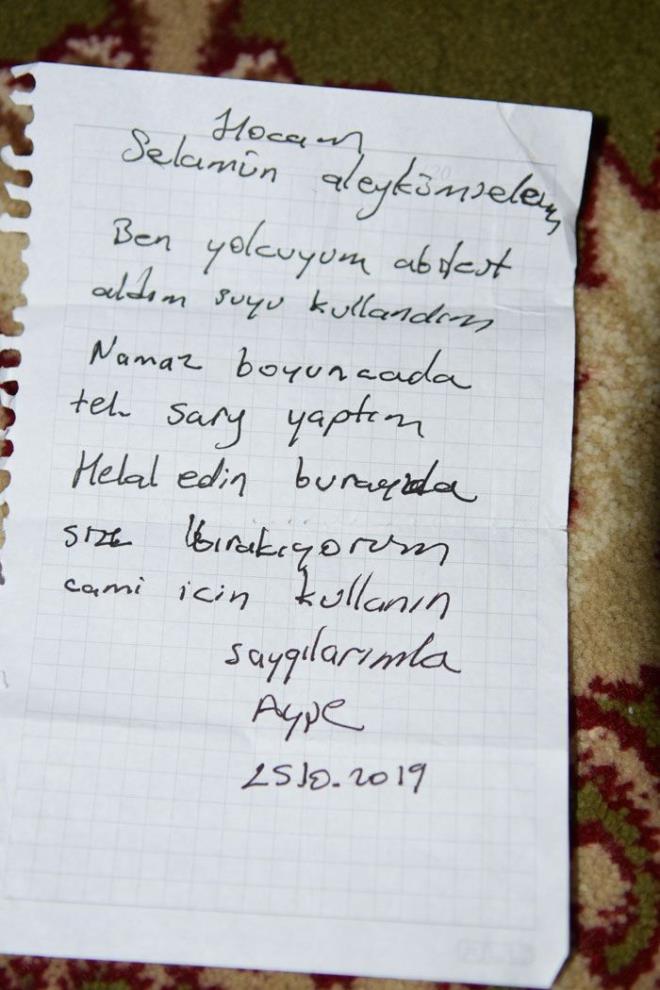 Hocam
Selamün aleykümselem
Ben yolcuyum abdest
aldım suyu kullandım
Namaz boyuncada
tel sarj yaptım
Helal edin burayıda
size bırakıyorum
cami icin kullanın
saygılarımla
Ayşe
2510.2019